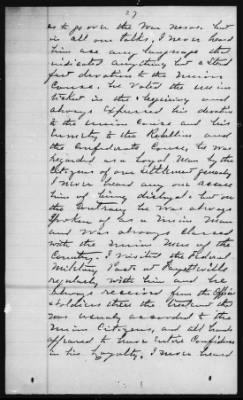 27
as to pover the War news. but
in all our talks, I never heard
him use any language that
indicated anything but a stead
fast devotion to the Union
Cause. he voted the union
ticket in the beginning and
always expressed his devotion
to the union cause and his
enmity to the Rebellion and
the Confederate Cause, he was
regarded as a Loyal Man by the
Citizens of our settlement generally
I never heard any one accuse
him of being disloyal. but on
the Contrary he was always
spoken of as a Union Man
and was always classed
with the Union Men of the
Country. I visited the Federal
Military Posts at Fayetteville
regularly with him and he
always received from the Officers
& Soldiers there the treatment that
was usually accorded to the
Union Citizens, and all hands
appeared to have entire Confidence
in his Loyalty, I never heard